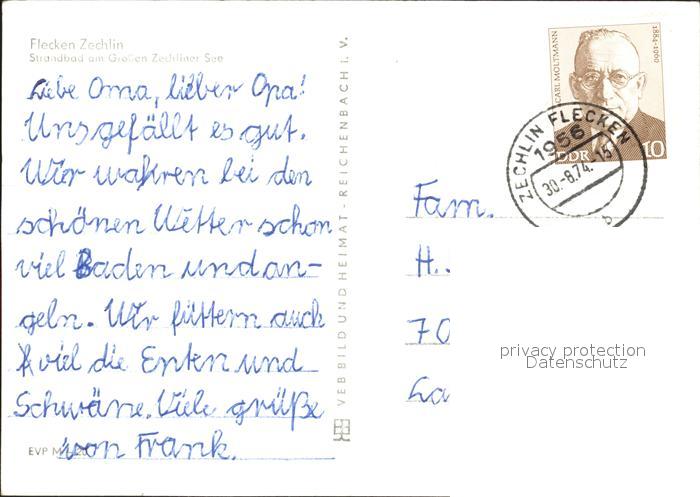 Flecken Zechlin
Strandbad am Großen Zechliner See
Liebe Oma, lieber Opa!
Uns gefällt es gut.
Wir wahren bei den
schönen Wetter schon
viel Baden und an-
geln. Wir füttern auch
viel die Enten und
Schwäne. Viele grüße
von Frank.
EVP M
VEB BILD UND HEIMAT · REICHENBACH I. V.
CARL MOLTMANN
1884-1960
DDR 10
ZECHLIN FLECKEN
1956
30.-8.74.-15
b
Fam.
H..
70
La
privacy protection
Datenschutz